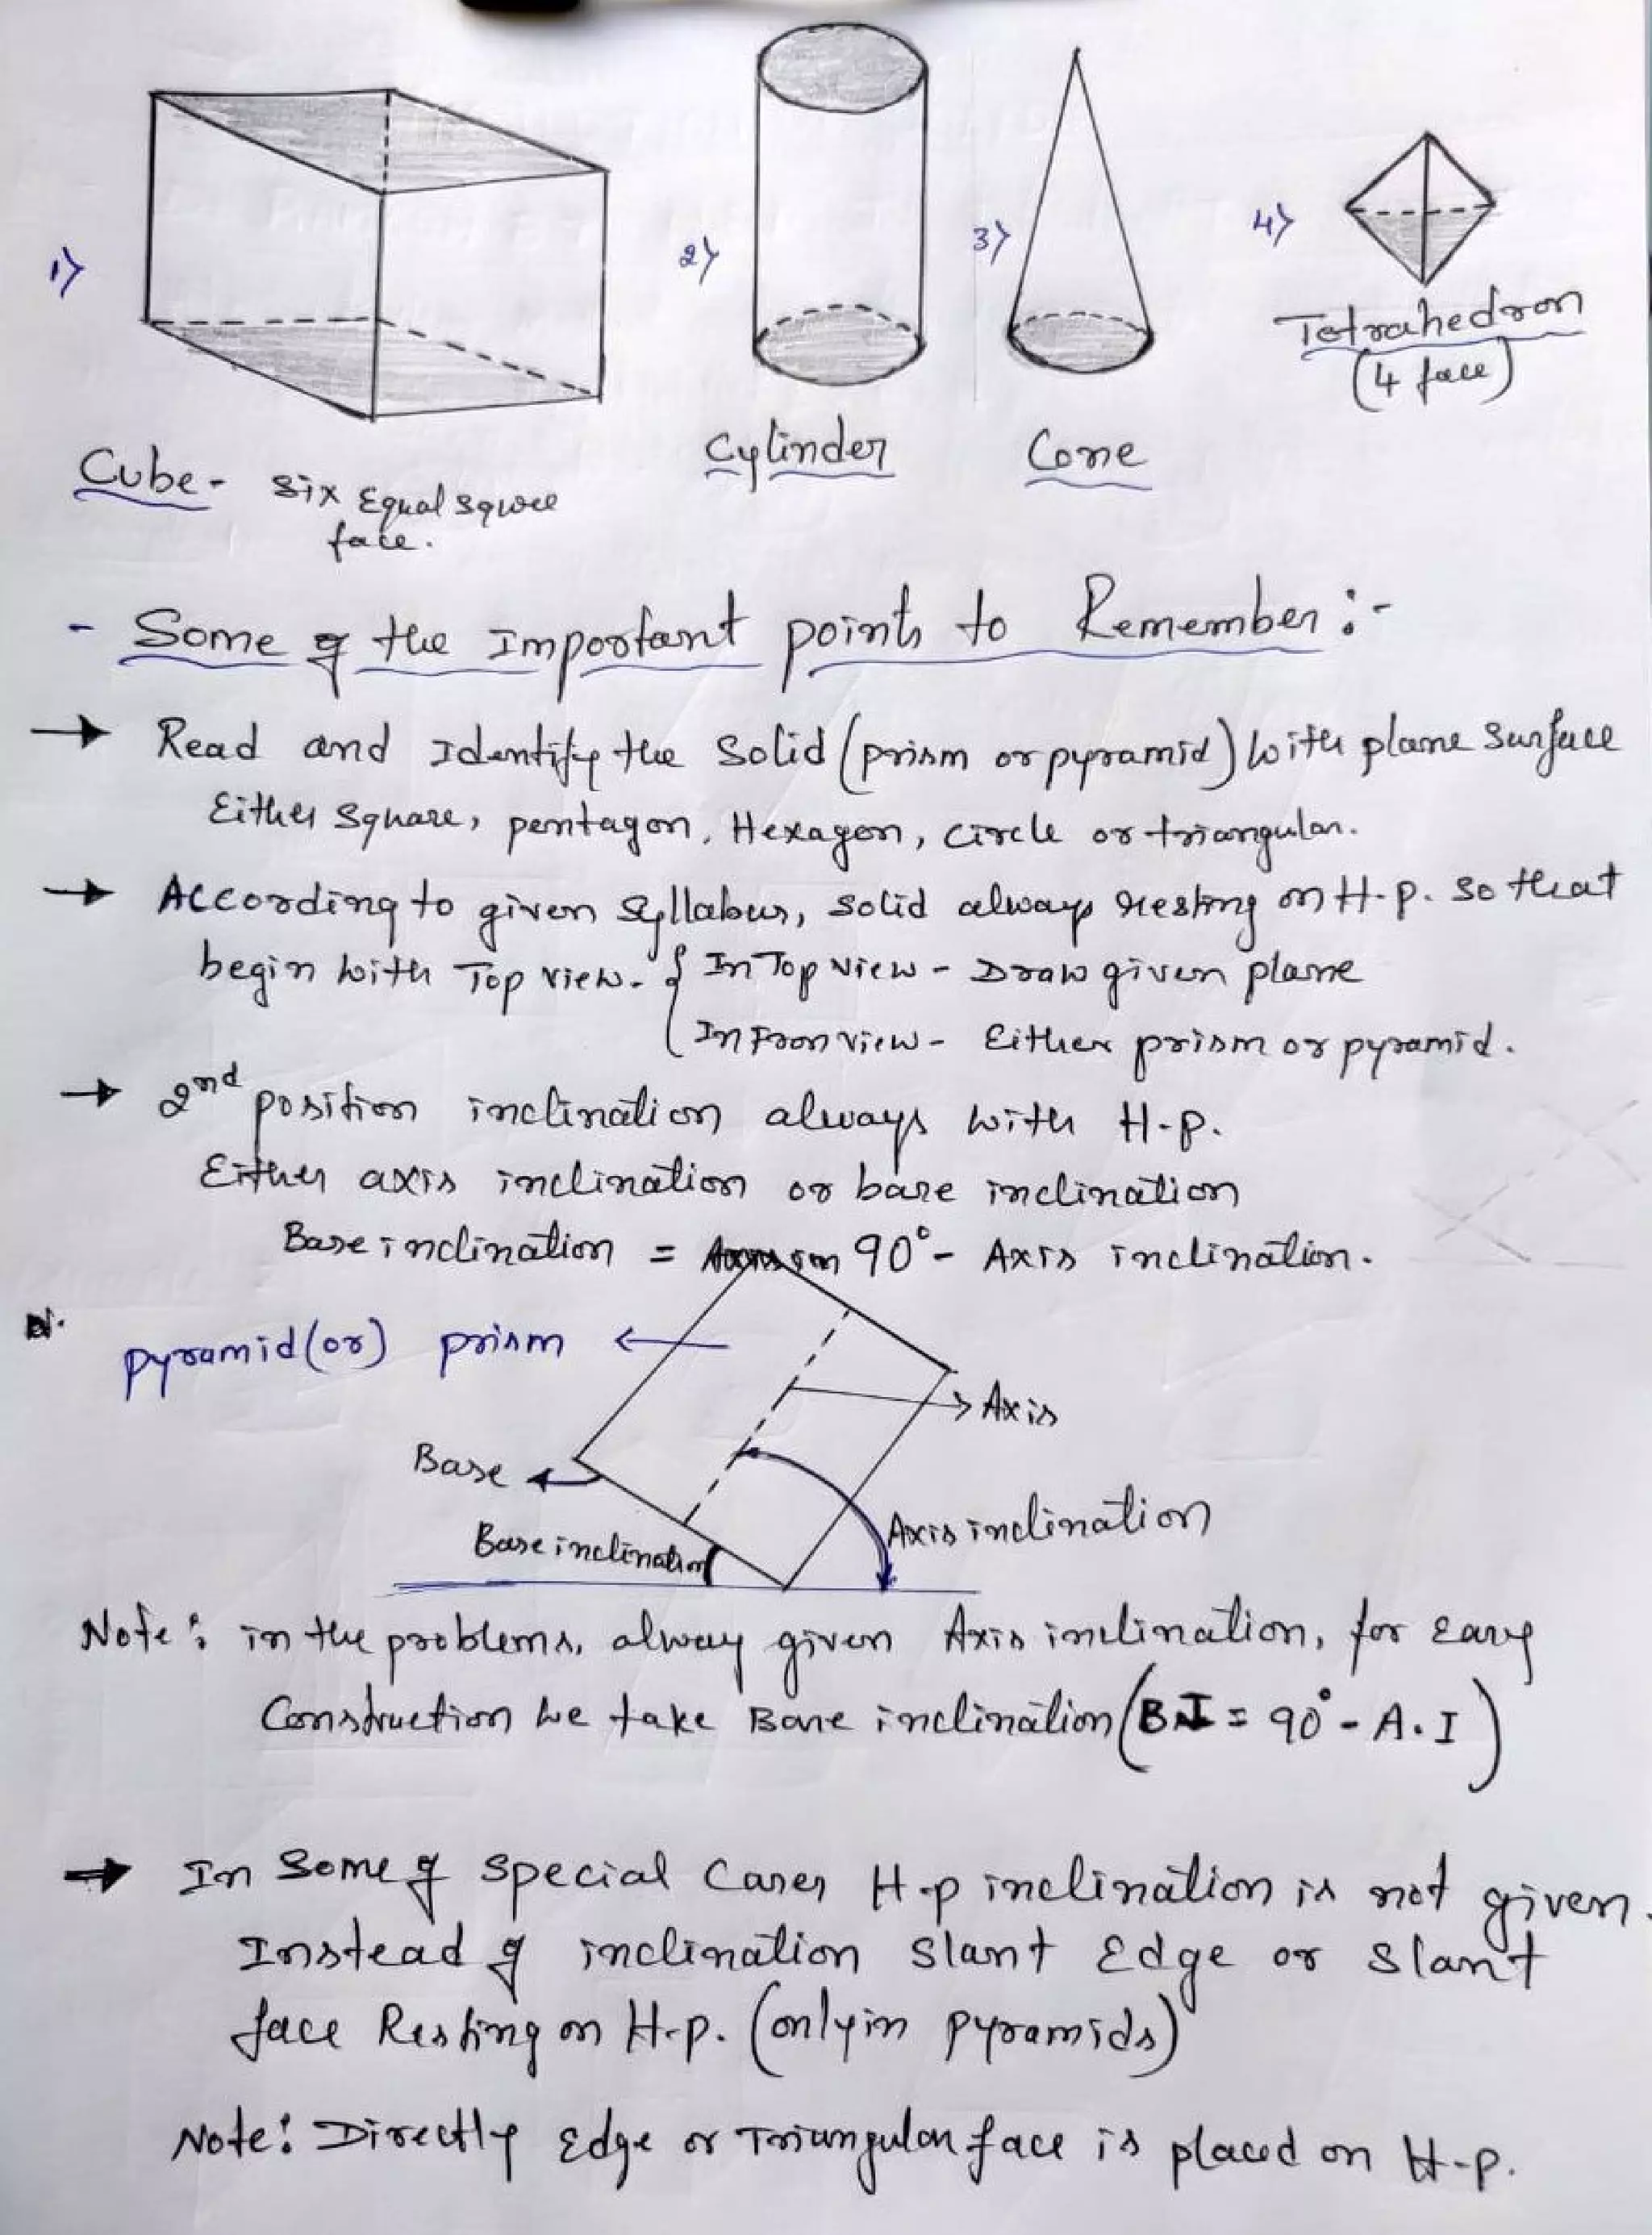 1)
2)
3)
4)
Tetrahedron
(4 face)
Cylinder
Cone
Cube - Six Equal Square
face.
- Some of the Important points to Remember :-
→ Read and Identify the Solid (prism or pyramid) with plane Surface
Either Square, pentagon, Hexagon, circle or triangular.
→ According to given Syllabus, Solid always resting on H.p. So that
begin with Top view. { In Top view - Draw given plane
In Fron view - Either prism or pyramid.
→ 2nd position inclination always with H.p.
Either axis inclination or base inclination
Base inclination = 90° - Axis inclination.
pyramid (or) prism
Axis
Base
Axis inclination
Base inclination
Note: in the problems, alway given Axis inclination, for Easy
Construction we take Base inclination (B.I = 90° - A.I)
→ In Some of Special Cases H.p inclination is not given.
Instead of inclination Slant Edge or Slant
face Resting on H.p. (only in pyramids)
Note: Directly Edge or Triangular face is placed on H.p.